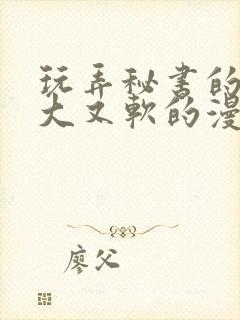 玩弄秘书的
大又软的漫
廖父